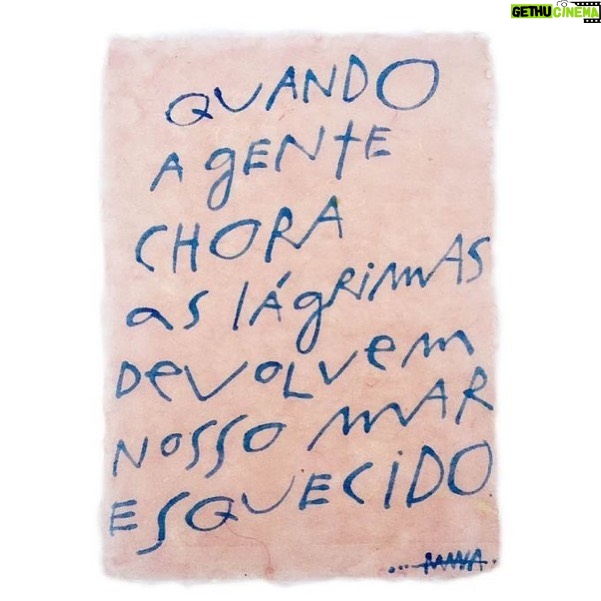 GETHUCINEMA
QUANDO
A GENTE
CHORA
as lágrimas
DEVOLVEM
NOSSO MAR
ESQUECIDO